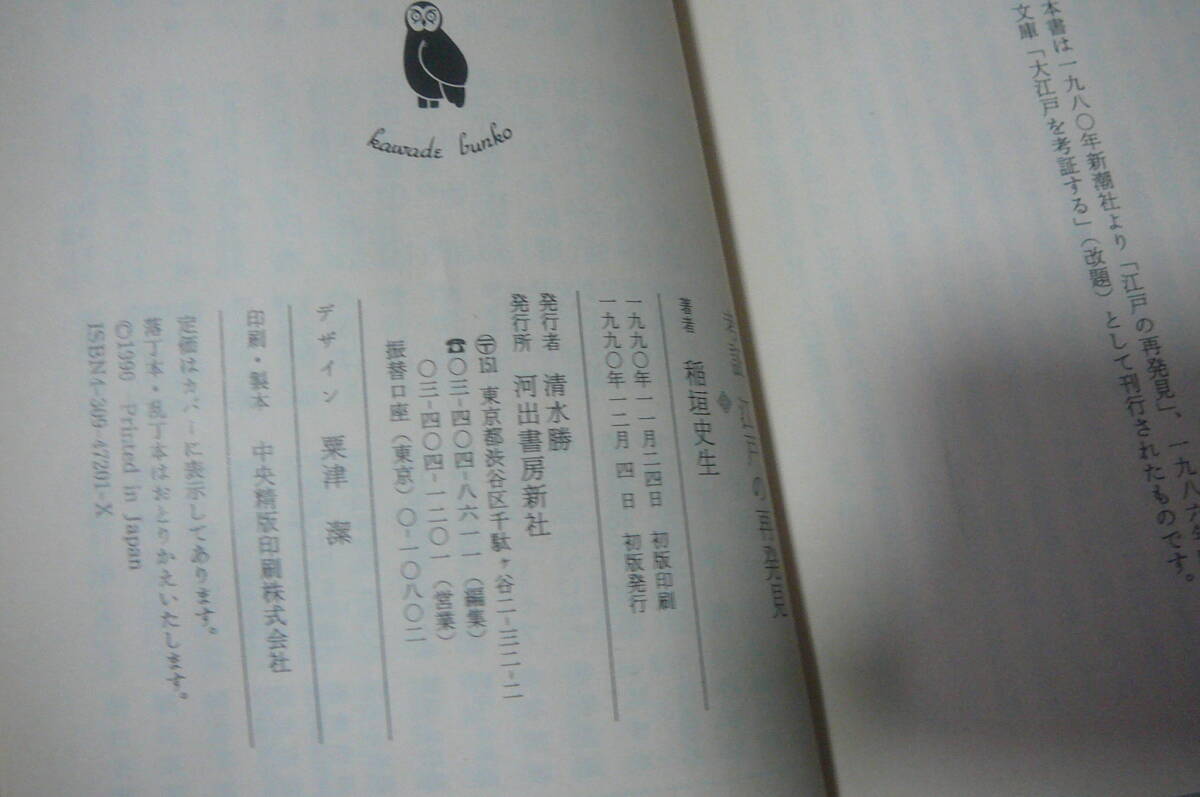 本書は一九八〇年新潮社より「江戸の再発見」、一九八六年
文庫「大江戸を考証する」(改題)として刊行されたものです。
kawade bunko
江戸の再発見
著者 稲垣史生
一九九〇年一一月二四日 初版印刷
一九九〇年一二月 四 日 初版発行
発行者 清水勝
発行所 河出書房新社
〒151 東京都渋谷区千駄ヶ谷二-三二-二
☎〇三-四〇四-八六一一(編集)
〇三-四〇四-一二〇一(営業)
振替口座(東京)〇-一〇八〇二
デザイン 粟津 潔
印刷・製本 中央精版印刷株式会社
定価はカバーに表示してあります。
落丁本・乱丁本はおとりかえいたします。
©1990 Printed in Japan
ISBN4-309-47201-X